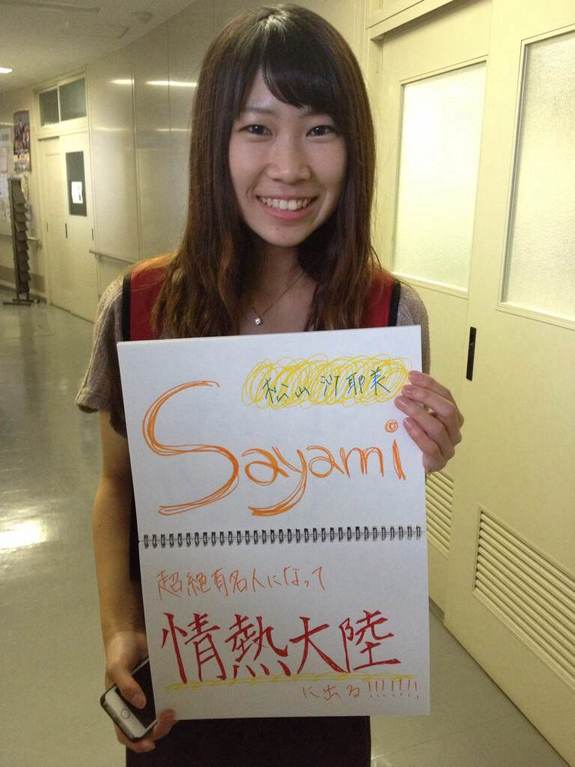 松山 沙耶美
Sayami
超絶有名人になって
情熱大陸
に出る!!!!!!!